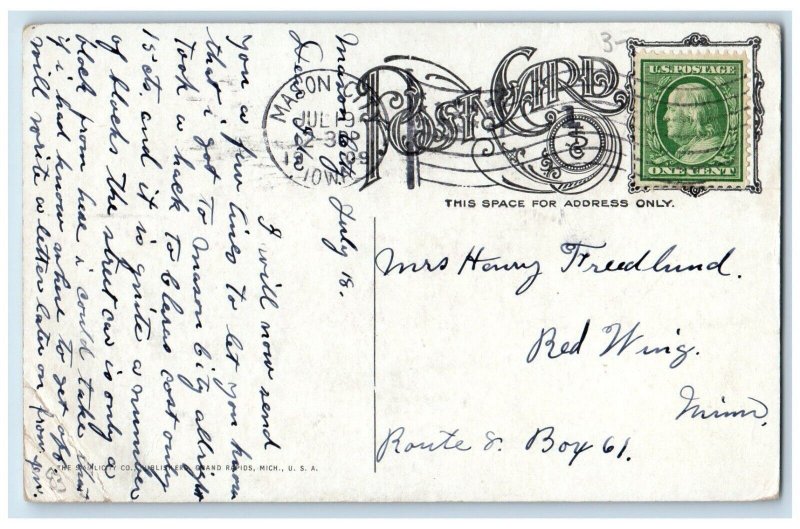 Mason City July 18.
Dear Sis
I will now send
you a few lines to let you know
that i got to Mason City allright
Took a hack to Claras cost only
15 cts. and it is quite a number
of blocks. the street car is only a
block from here i could take that
if i had know where to get off.
will write a letter later on from
POST CARD
MASON CITY
JUL 19
2-30 P
1909
IOWA
3-
U.S. POSTAGE
ONE CENT
THIS SPACE FOR ADDRESS ONLY.
Mrs Henry Freedlund.
Red Wing.
Minn.
Route 8. Box 61.
THE SIMPLICITY CO., PUBLISHERS, GRAND RAPIDS, MICH., U. S. A.